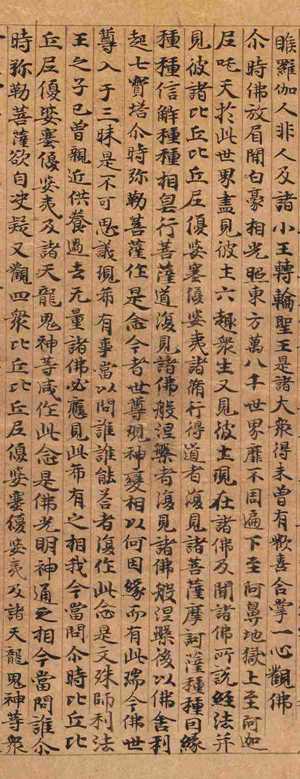 睺羅伽人非人及諸小王轉輪聖王是諸大衆得未曾有歡喜合掌一心觀佛
尒時佛放眉間白豪相光照東方萬八千世界靡不周遍下至阿鼻地獄上至阿迦
尼吒天於此世界盡見彼土六趣衆生又見彼土現在諸佛及聞諸佛所說經法并
見彼諸比丘比丘尼優婆塞優婆夷諸脩行得道者復見諸菩薩摩訶薩種種因緣
種種信解種種相皃行菩薩道復見諸佛般涅槃者復見諸佛般涅槃後以佛舍利
起七寶塔尒時弥勒菩薩作是念今者世尊現神變相以何因緣而有此瑞今佛世
尊入于三昧是不可思議現希有事當以問誰誰能荅者復作此念是文殊師利法
王之子已曾親近供養過去无量諸佛必應見此希有之相我今當問尒時比丘比
丘尼優婆塞優婆夷及諸天龍鬼神等咸作此念是佛光明神通之相今當問誰尒
時弥勒菩薩欲自決疑又觀四衆比丘比丘尼優婆塞優婆夷及諸天龍鬼神等衆